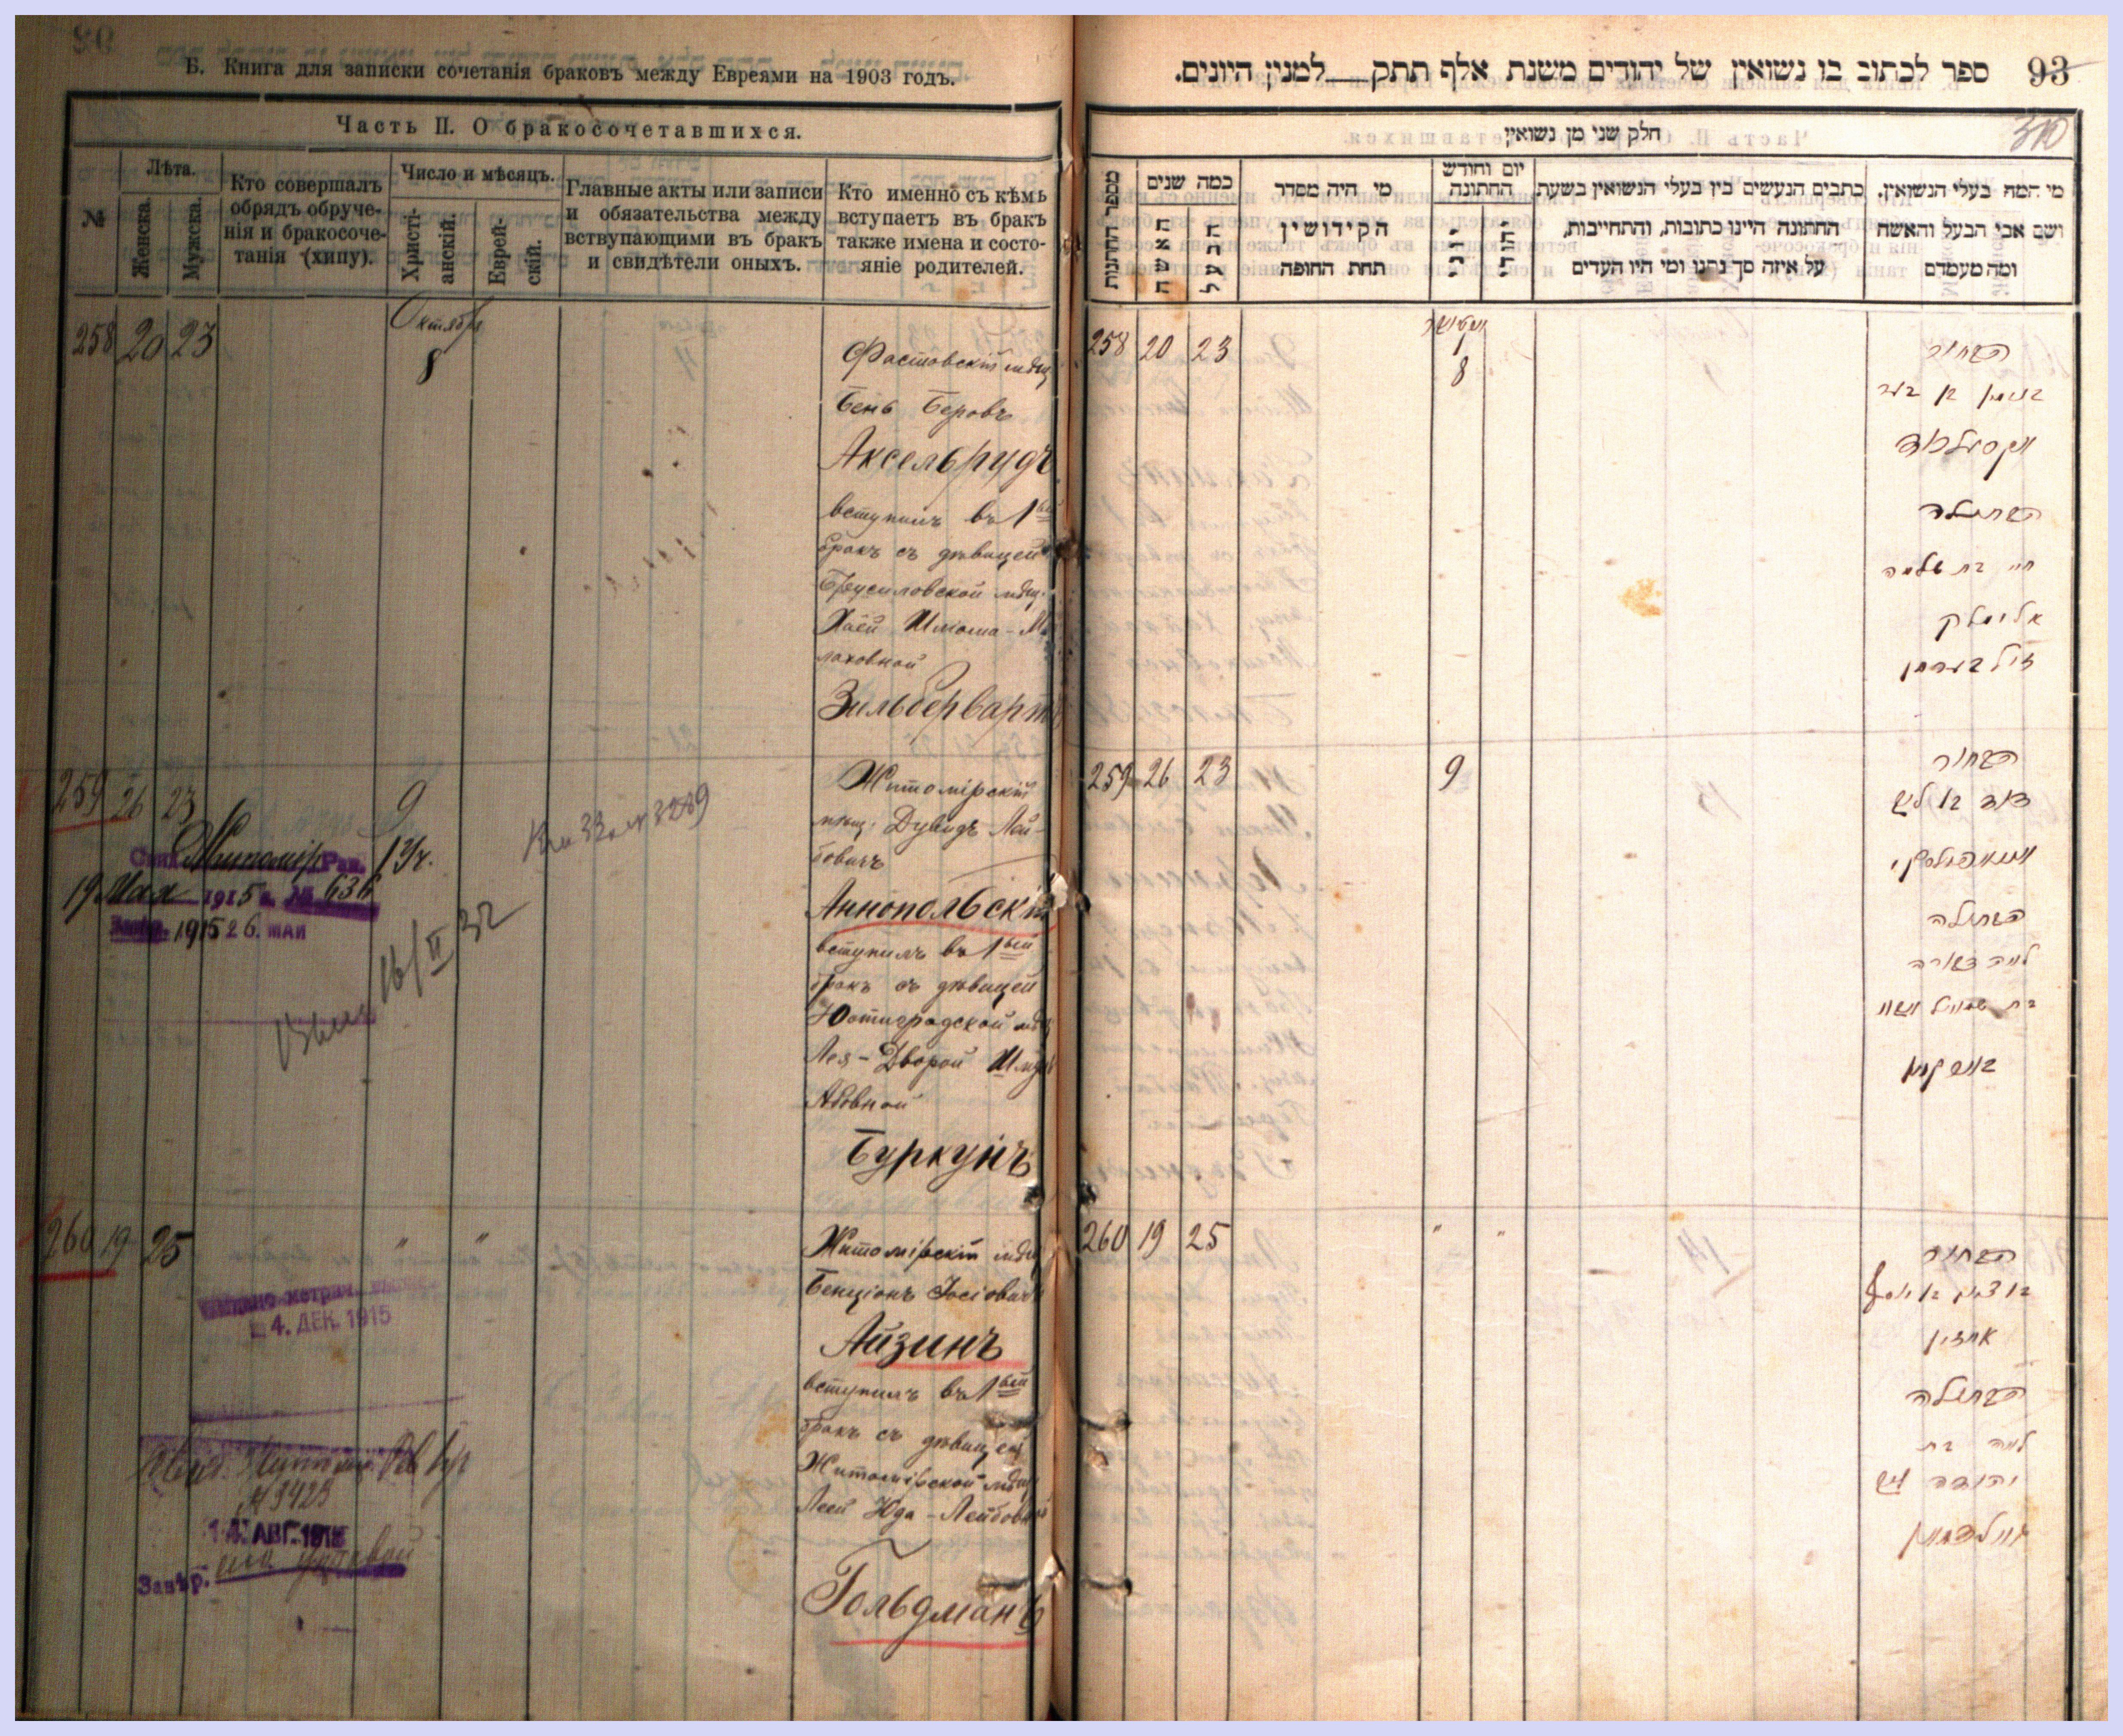 Б. Книга для записки сочетанія браковъ между Евреями на 1903 годъ.
Часть II. О бракосочетавшихся.
№
Лѣта.
Женска.
Мужска.
Кто совершалъ
обрядъ обруче-
нія и бракосоче-
танія (хипу).
Число и мѣсяцъ.
Христі-
анскій.
Еврей-
скій.
Главные акты или записи
и обязательства между
вствупающими въ бракъ
и свидѣтели оныхъ.
Кто именно съ кѣмъ
вступаетъ въ бракъ
также имена и состо-
яніе родителей.
258 20 23
Октября
8
Фастовскій мѣщ
Бень Беровъ
Аксельрудъ
вступилъ въ 1ый
бракъ съ дѣвицей
Брусиловской мѣщ.
Хаей Шлома-Ме
лаховной
Зильберварт
259 26 23
9
Житомірскій
мѣщ. Дувидъ Лей-
бовичъ
Аннопольскій
вступилъ въ 1ый
бракъ съ дѣвицей
Лея-Дворой Шму
Абовной
Буркунъ
Житомір Рав.
19 Мая 1915 г. № 636
Завѣр. 1915 26. МАЙ
16/II 32
260 19 25
" "
Житомірскій мѣщ
Бенціонъ Іосіовичъ
Айзинъ
вступилъ въ 1ый
бракъ съ дѣвицей
Житомірской мѣщ
Леей Юда-Лейбовной
Гольдманъ
4. ДЕК. 1915
14. АВГ. 191
Завѣр.
93 ספר לכתוב בו נשואין של יהודים משנת אלף תתק למנין היונים.
310
חלק שני מן נשואין
מספר החתונות
כמה שנים
האשה
הבעל
מי היה מסדר
הקידושין
תחת החופה
יום וחודש
החתונה
יווני
יהודי
כתבים הנעשים בין בעלי הנשואין בשעת
החתונה היינו כתובות, והתחייבות,
על איזה סך נתנו ומי היו העדים
מי המה בעלי הנשואין,
ושם אבי הבעל והאשה
ומה מעמדם
258 20 23
8
הבחור
בנימין בן בער
אקסעלרוד
הבתולה
חי' בת שלמה
אלימלך
זילבערווארט
259 26 23
9
הבחור
דוד בן ליב
אנאפולסקי
הבתולה
לאה דבורה
בורקון
260 19 25
" "
הבחור
בן ציון בן יוסף
אייזין
הבתולה
לאה בת
יהודה ליב
גאלדמאן